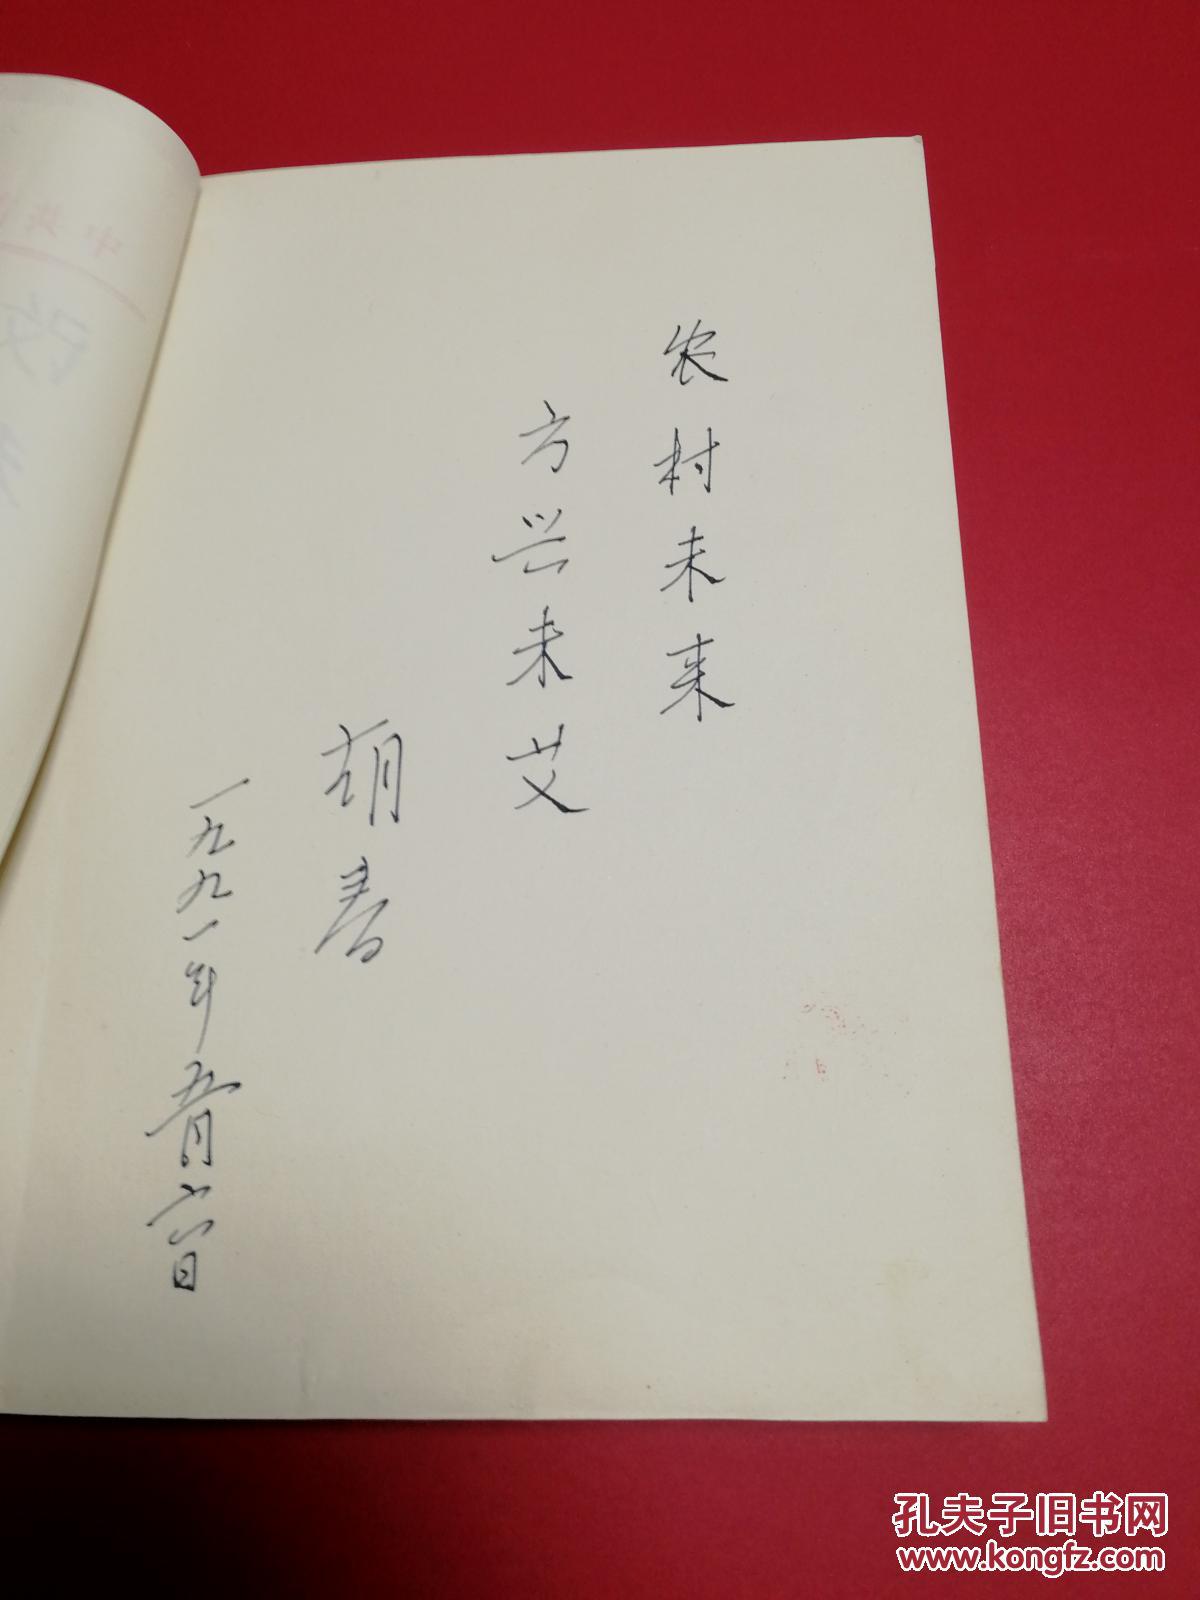 农村未来
方兴未艾
胡春
一九九一年五月六日
中共
改
孔夫子旧书网
www.kongfz.com